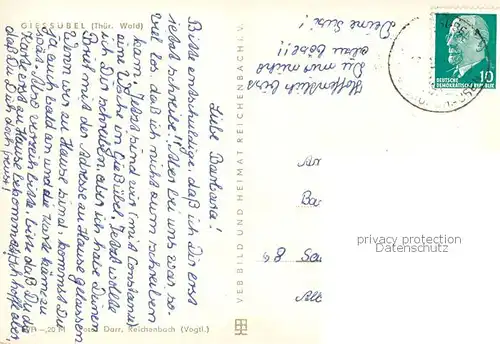 GIESSÜBEL (Thür. Wald)
Liebe Barbara!
Bitte entschuldige, daß ich Dir erst
jetzt schreibe!! Aber bei uns war so-
viel los, daß ich nicht zum schreiben
kam. Jetzt sind wir (mit Constanze)
eine Woche in Gießübel. Jetzt wollte
ich Dir schreiben, aber ich habe Deinen
Brief mit der Adresse zu Hause gelassen
Wenn wir zu Hause sind, kommst Du
ja auch bald an und die Karte käme zu
spät. Also verzeih bitte, daß Du die
Karte erst zu Hause bekommst. Ich hoffe aber,
daß Du Dich doch freust!
Hoffentlich bist
Du mir nicht
allzu böse!!
Deine Susi!
VEB BILD UND HEIMAT REICHENBACH I. V.
-,20 M Foto: Darr, Reichenbach (Vogtl.)
DEUTSCHE
DEMOKRATISCHE REPUBLIK
10
privacy protection
Datenschutz